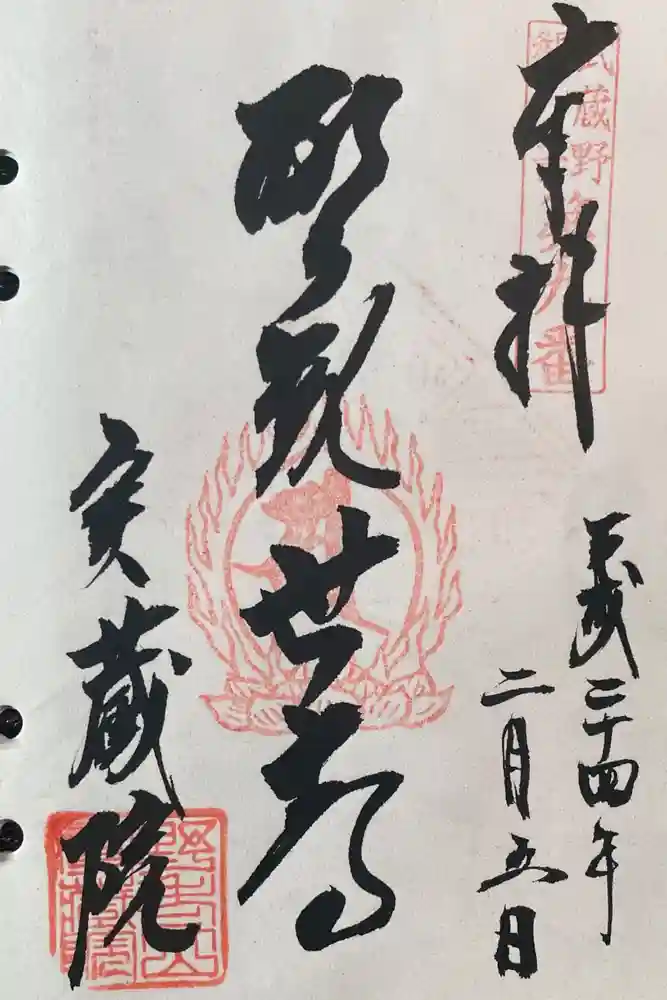 奉拝
武蔵野第九番
平成二十四年
二月五日
聖観世音
実蔵院